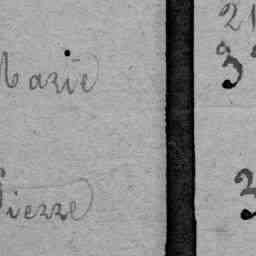 21
Marie 3
Pierre 3